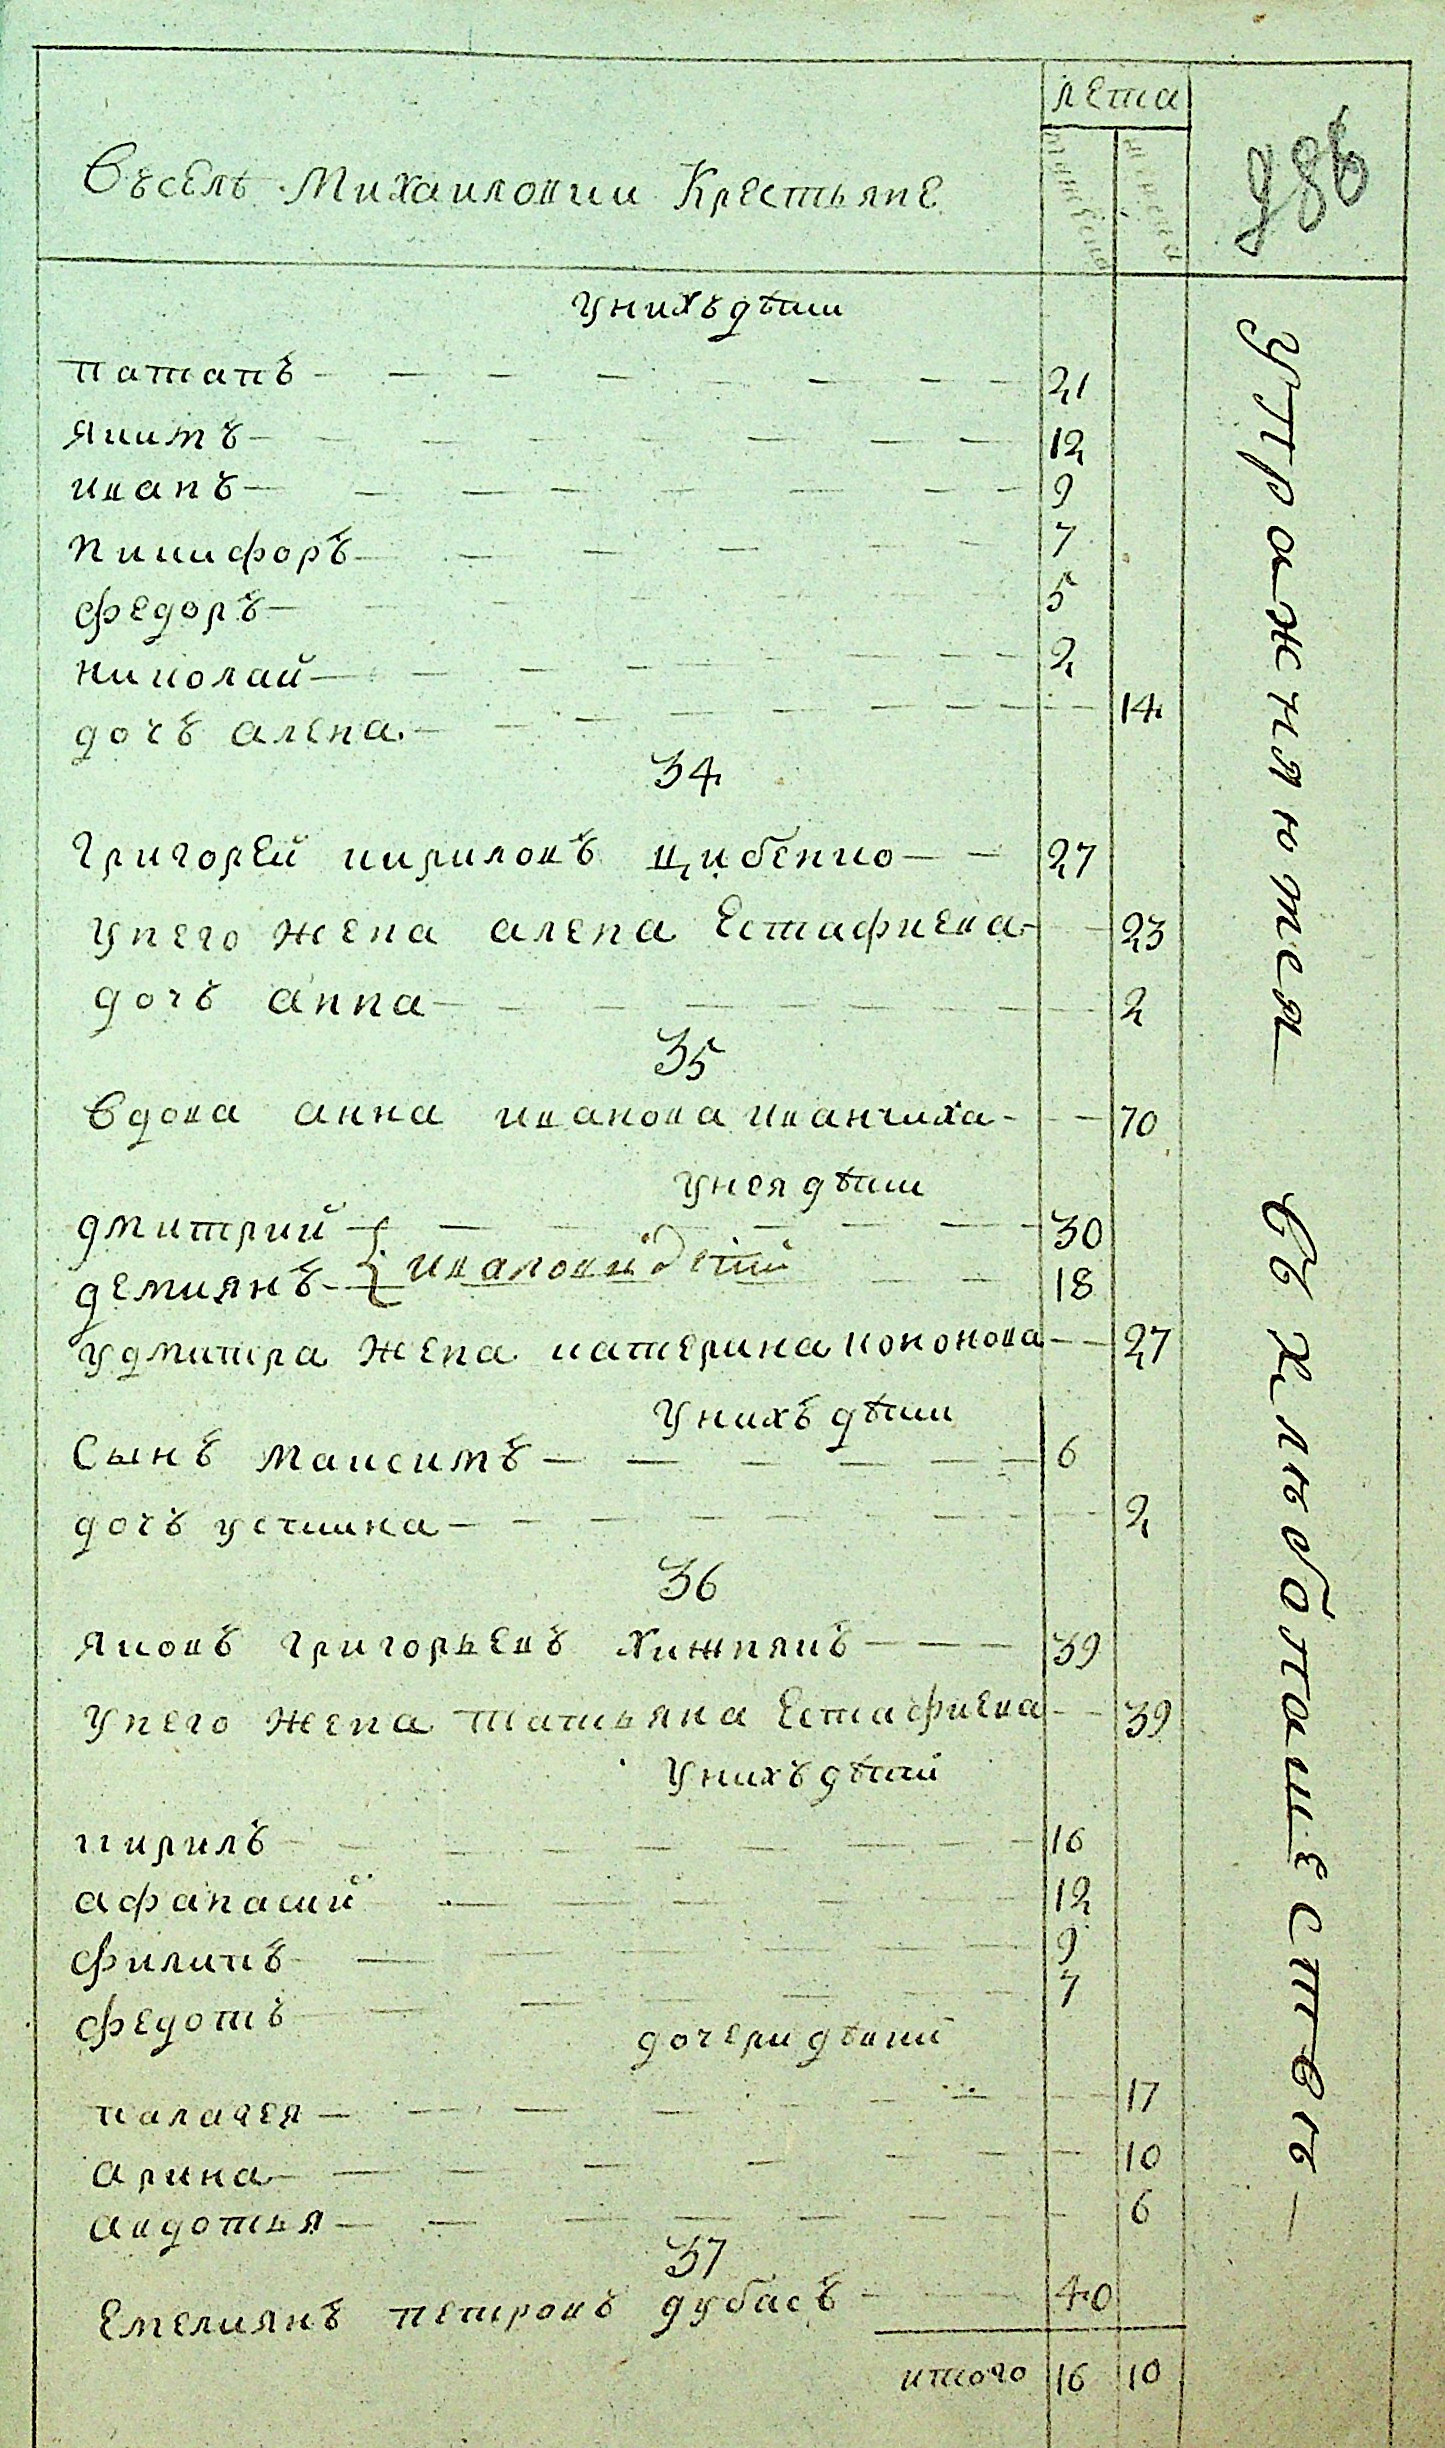 лета
Въселъ Михаиловки Крестьяне
мужеска
женска
986
унихъ дѣти
патапъ 21
якимъ 12
иванъ 9
никифоръ 7
федоръ 5
николай 2
дочъ алена 14
34
григорей кириловъ цибенко 27
унего жена алена Естафиева 23
дочъ анна 2
35
вдова анна иванова иванчиха 70
унея дѣти
дмитрий 30
ивановы дети
демиянъ 18
удмитра жена катерина кононова 27
унихъ дѣти
сынъ максимъ 6
дочъ устинна 2
36
яковъ григорьевъ хижнякъ 39
унего жена татьяна Естафиева 39
унихъ дѣтий
кирилъ 16
афанасий 12
филипъ 9
федотъ 7
дочери дѣвки
палагея 17
арина 10
авдотья 6
37
Емелиянъ петровъ дубасъ 40
итого 16 10
упражняются въ хлѣбопашествѣ